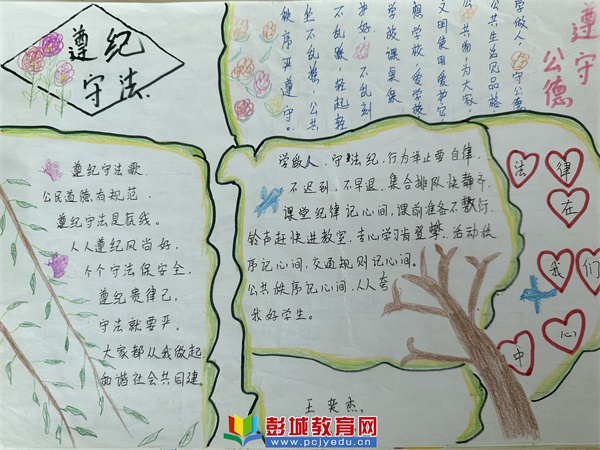 遵纪
守法
遵守
公德
学做人，守公德
公共生活见品格
公共物，为大家
文明使用爱护它
学校，爱学校
学校课桌保
护好。不乱刻
不乱跳，轻起轻
坐不乱挤，公共
秩序要遵守。
遵纪守法歌
公民道德有规范，
遵纪守法是底线。
人人遵纪风尚好，
个个守法保安全，
遵纪贵律己，
守法就要严。
大家都从我做起
和谐社会共同建。
学做人，守法纪，行为举止要自律，
不迟到，不早退，集合排队快静齐
课堂纪律记心间，课前准备不
铃声赶快进教室，专心学习肯登攀，活动秩
序记心间，交通规则记心间。
公共秩序记心间，人人夸
我好学生。
法律
在
我们
心
中
王奕杰
彭城教育网
www.pcjyedu.cn